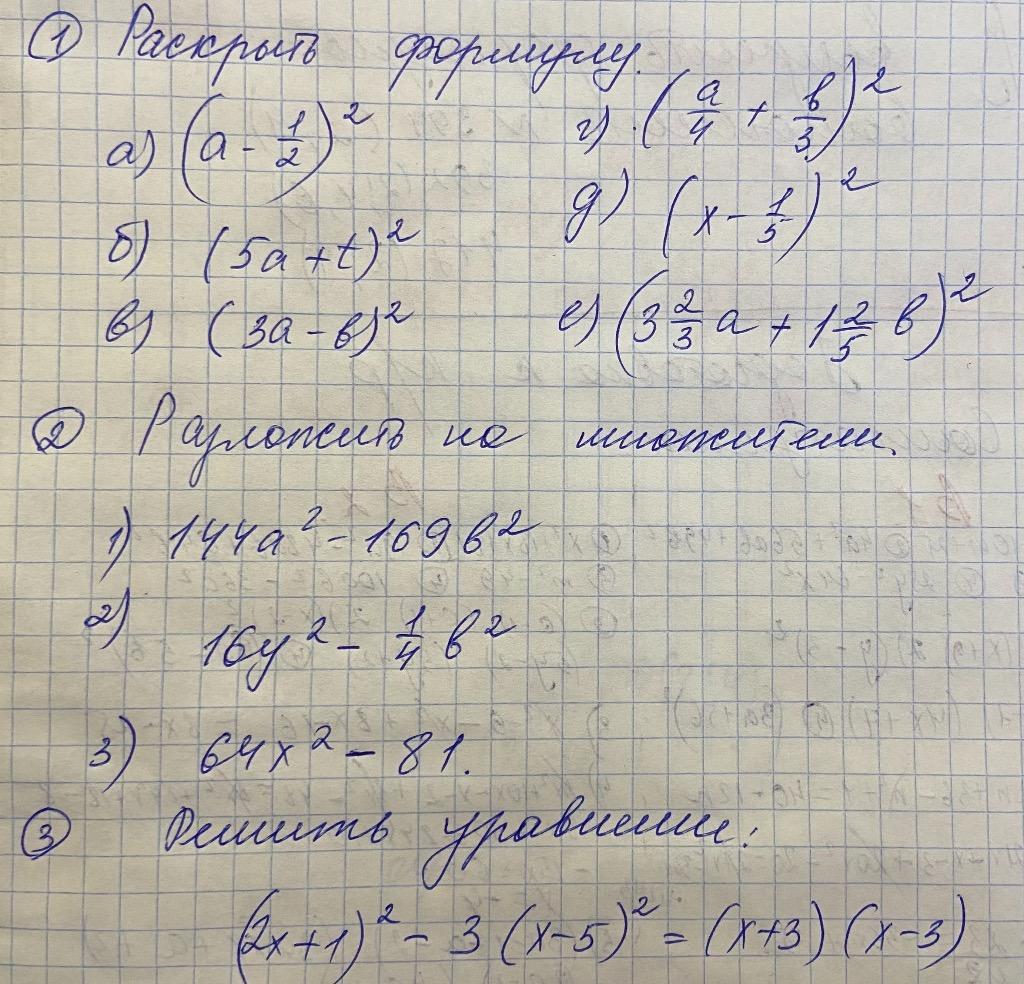 ① Раскрыть формулу.
а) (a - 1/2)²
б) (5a + t)²
в) (3a - b)²
г) (a/4 + b/3)²
д) (x - 1/5)²
е) (3 2/3 a + 1 2/5 b)²
② Разложить на множители.
1) 144a² - 169b²
2) 16y² - 1/4 b²
3) 64x² - 81.
③ Решить уравнение:
(2x+1)² - 3(x-5)² = (x+3)(x-3)